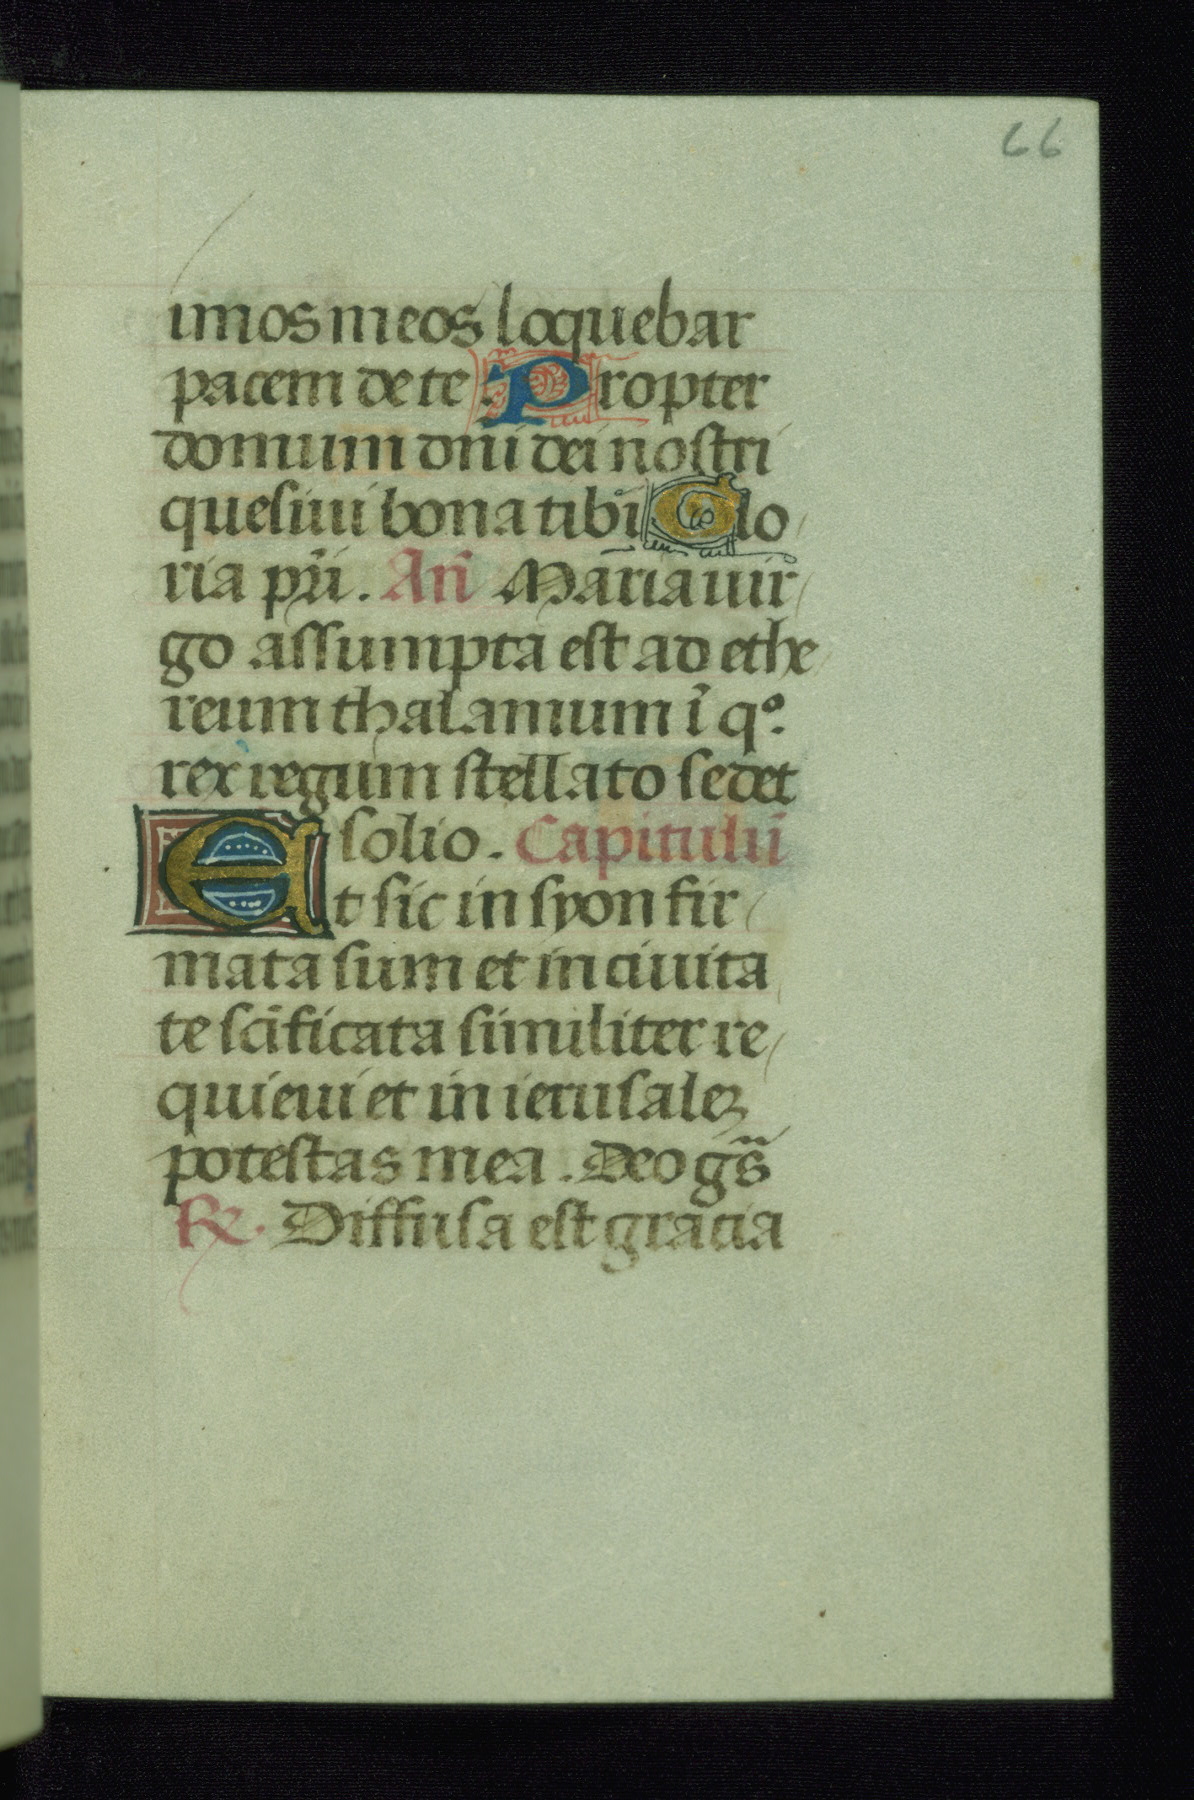 66
imos meos loquebar
pacem de te Propter
domum dñi dei nostri
quesiui bona tibi Glo
ria pr̃i. Añ Maria uir
go assumpta est ad ethe
reum thalamum ĩ qº.
rex regum stellato sedet
solio. Capitulũ
Et sic in syon fir
mata sum et in ciuita
te scĩficata similiter re
quieui et in ierusaleꝫ
potestas mea. Deo gr̃s
℟. Diffusa est gracia